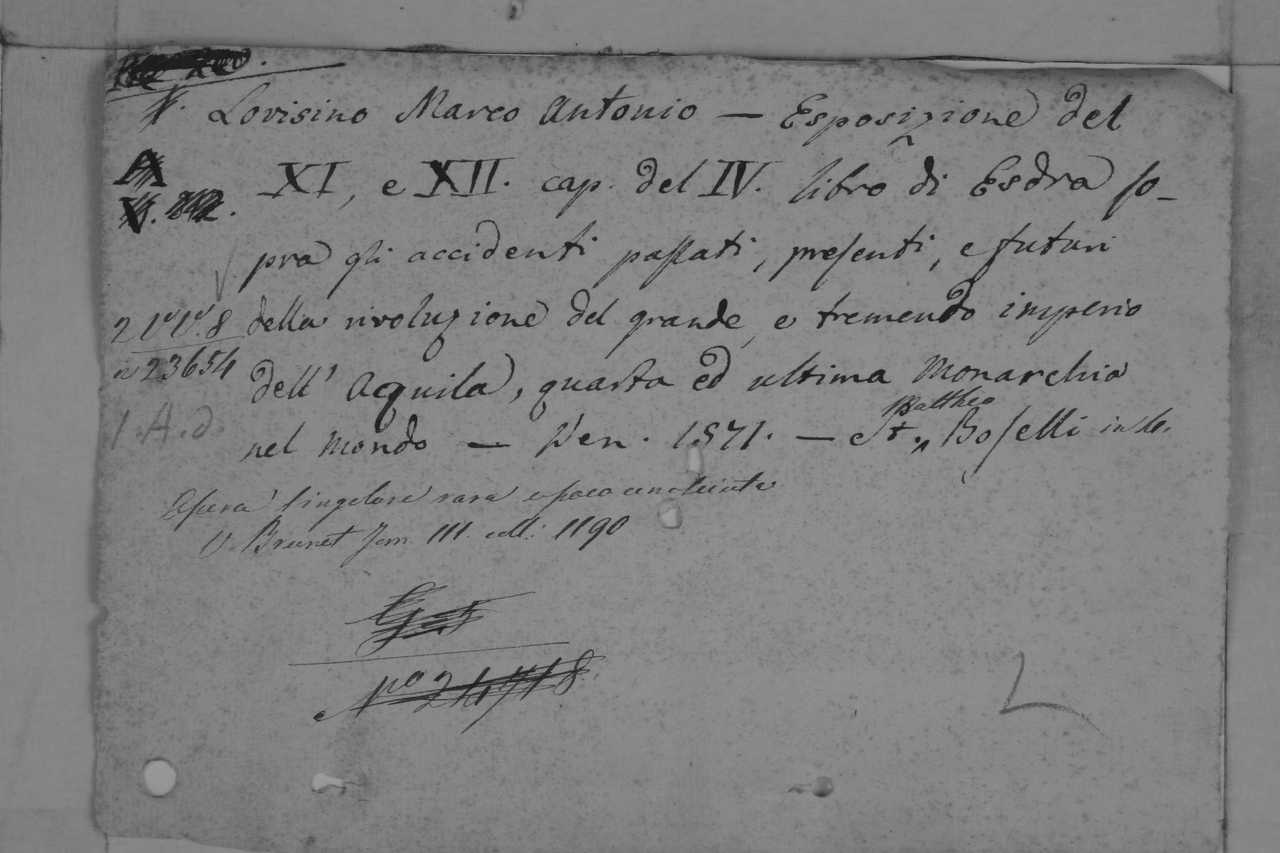 Lovisino Marco Antonio — Esposizione del
A
XI, e XII. cap. del IV. libro di Esdra so-
V.
pra gli accidenti passati, presenti, e futuri
della rivoluzione del grande, e tremendo imperio
23654
dell' Aquila, quarta ed ultima Monarchia
1. A. d.
Mattheo
nel mondo — Ven. 1571. — St. Boselli in 4o.
Opera singolare rara e poco conosciuta
V. Brunet Tom III. coll: 1190
No 24718